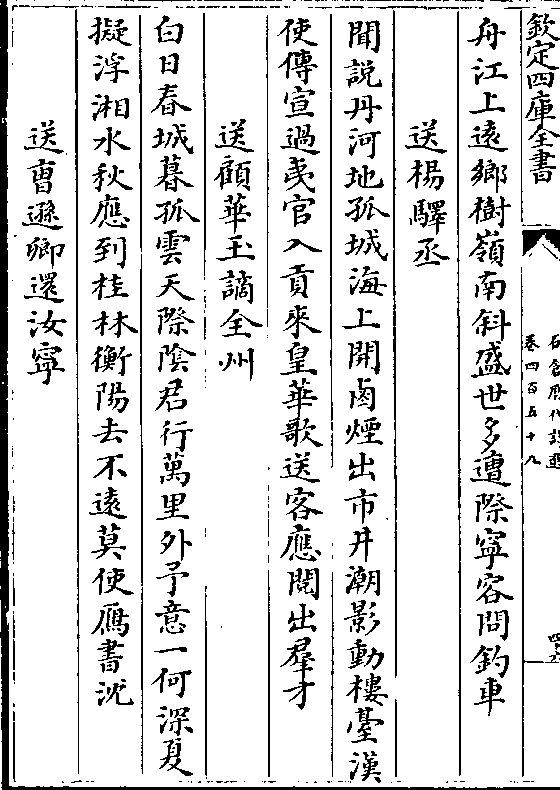 欽定四庫全書
卷四百五十九
舟江上遠鄉樹嶺南斜盛世多遭際寧容問釣車
送楊驛丞
聞説丹河地孤城海上開鹵煙出市井潮影動樓臺漢
使傳宣過夷官入貢來皇華歌送客應閱出羣才
送顧華玉謫全州
白日春城暮孤雲天際陰君行萬里外予意一何深夏
擬浮湘水秋應到桂林衡陽去不遠莫使鴈書沈
送曹遜卿還汝寧